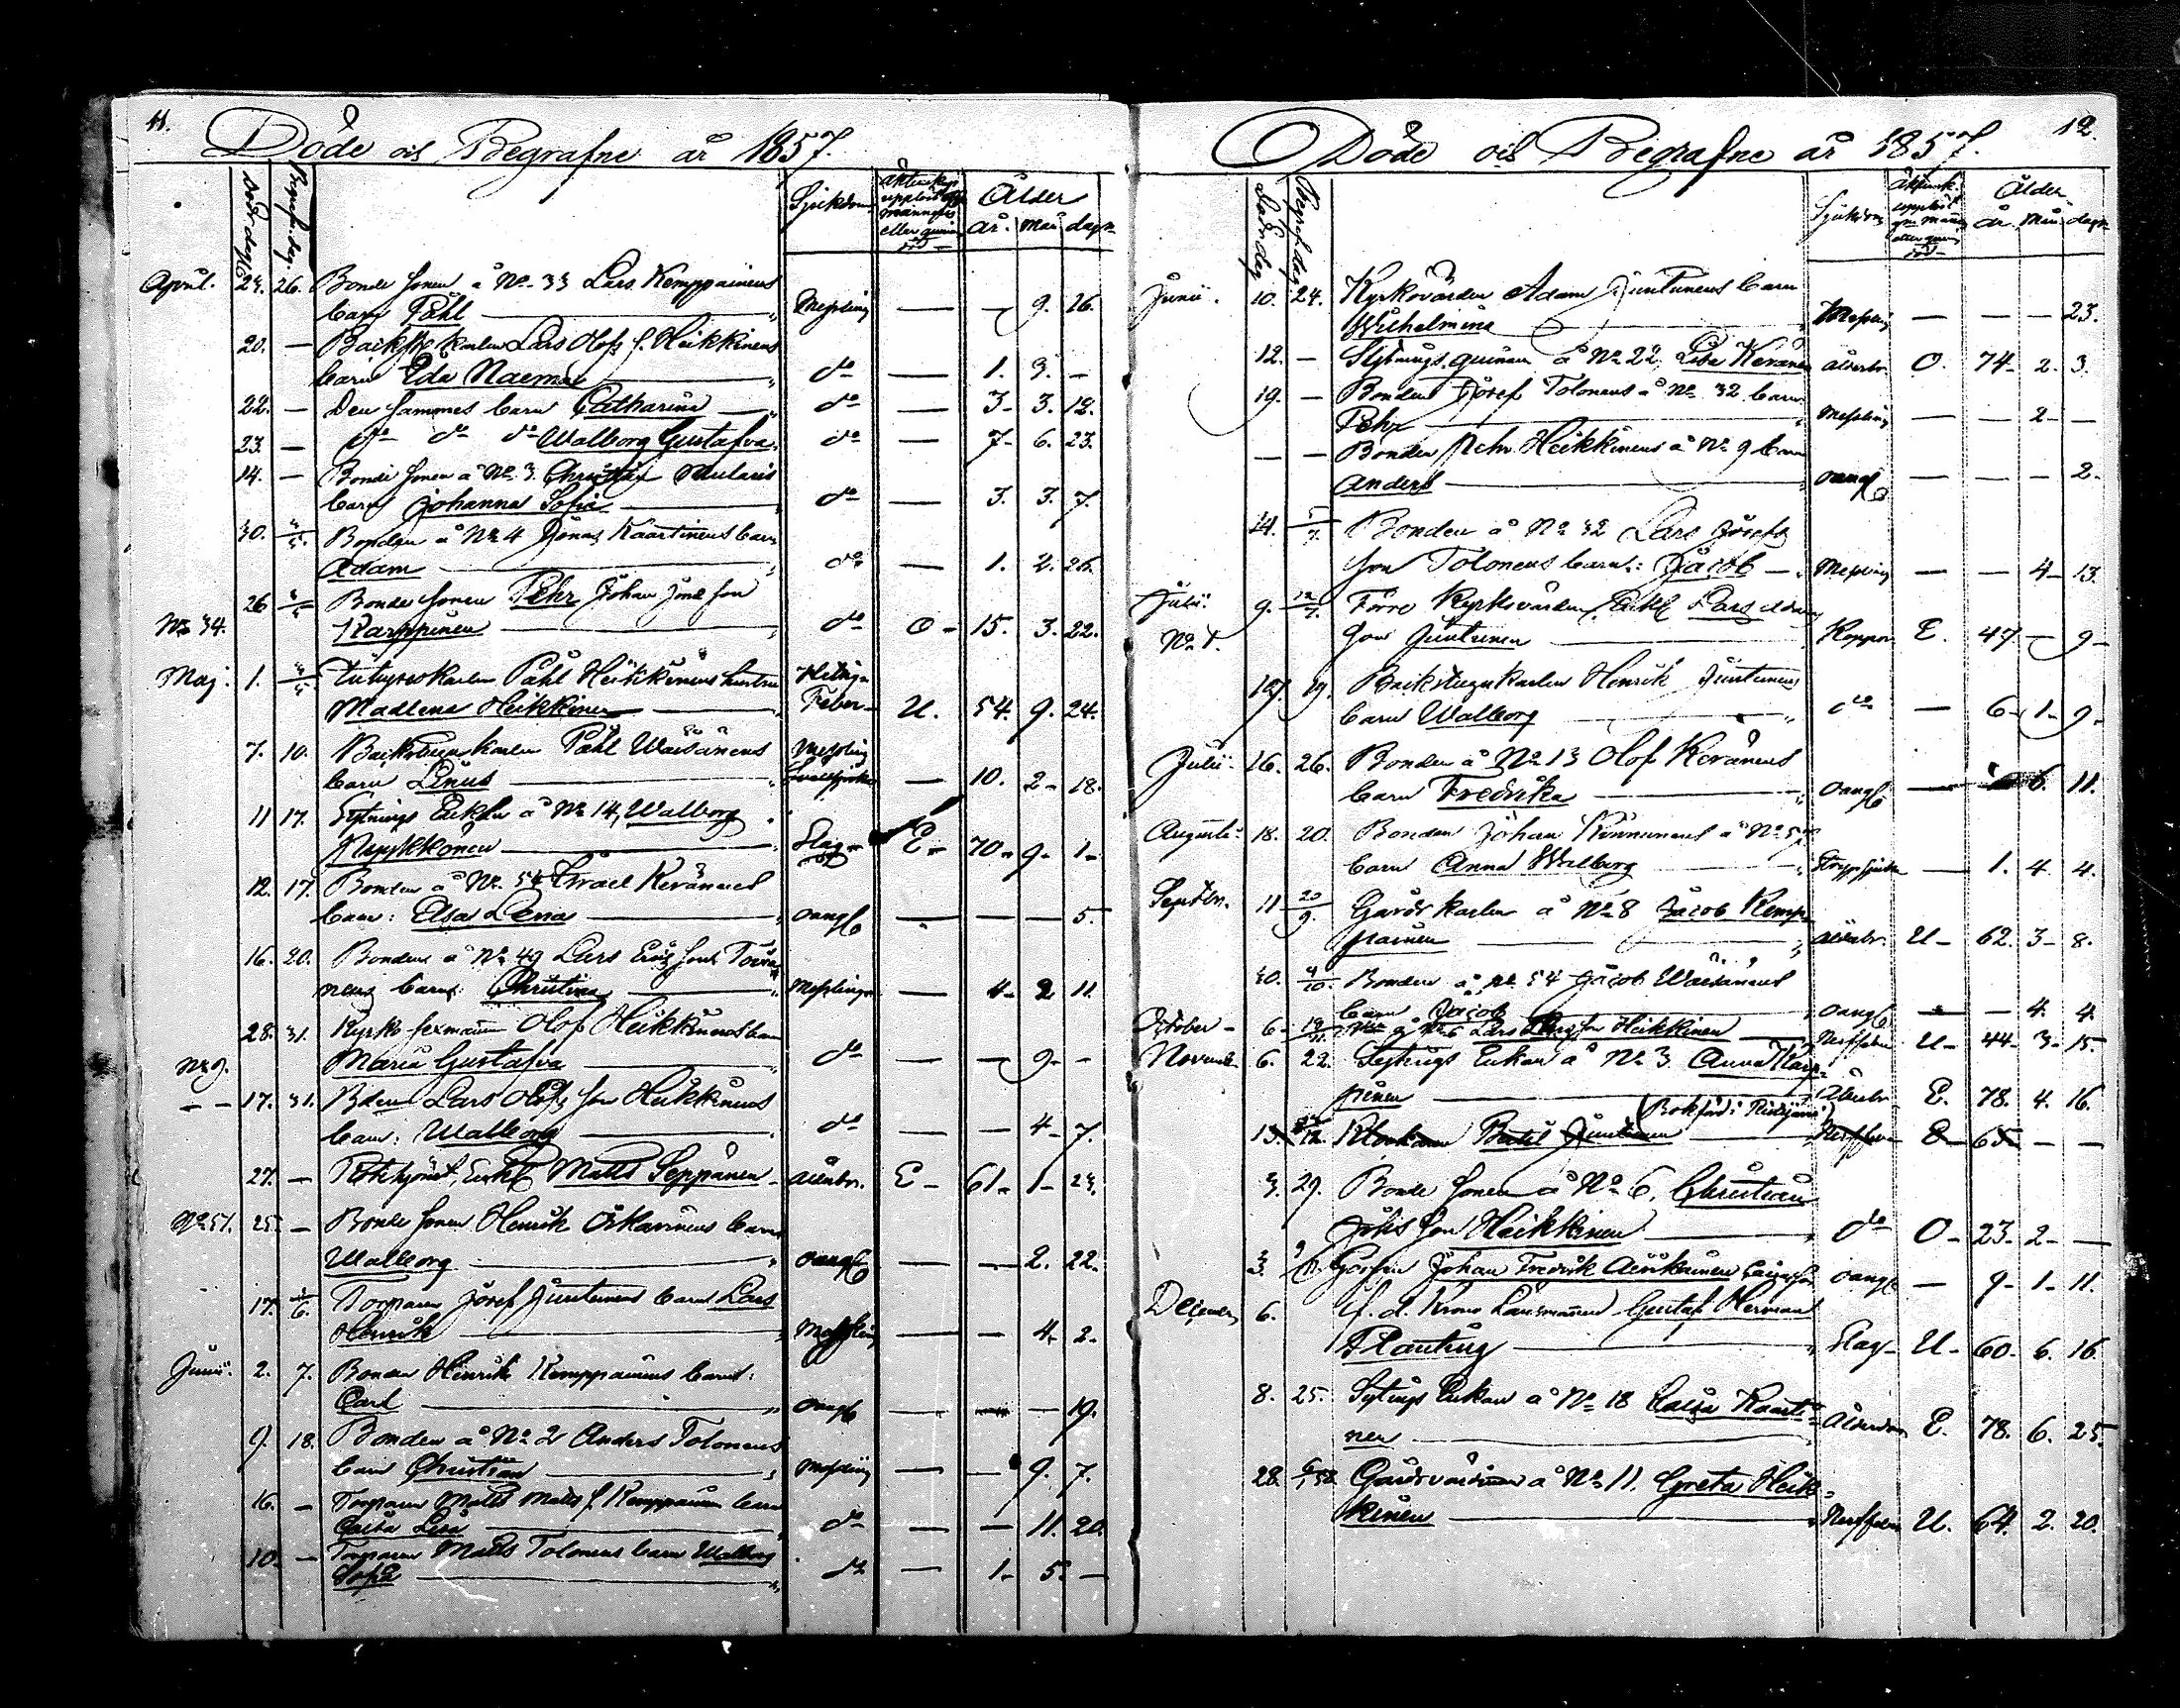 11.
Döde och Begrafne år 1857.
Döds dag Begrafn. dag. Sjukdom Ålder
år. mån. dagar
April. 24. 26. Bonde sonen å No 33 Lars Kemppainens
barn Påhl Messling — — 9. 16.
20. — Backstugukarlen Lars Olofs s. Heikkinens
barn Eda Naema do — 1. 3. —
22. — Den sammes barn Catharina do — 3- 3. 12.
23. — do do do Walborg Gustafva do — 7- 6. 23.
14. — Bonde sonen å No 3. Christian
barn Johanna Sofia do — 3. 3. 7.
30. Bonden å No 4 Jonas Kaartinens barn
Adam do — 1. 2. 26.
26 Bonde sonen Pehr Johan son
No 34. Karppinen do O- 15. 3. 22.
Maj. 1. Påhl Heikkinens hustru
Madlena Heikkinen Feber U. 54. 9. 24.
7. 10. Backstugu karlen Påhl Waisänens Messling
barn Linus — 10. 2- 18.
11 17. Sytnings Enkan å No 14, Walborg
Pyykkönen Slag E- 70- 9- 1-
12. 17. Bonden å No. 54 Israel Keränens
barn: Elsa Lena oangf — — — 5.
16. 20. Bonden å No 49 Lars Erics sons
nens barn: Christina Messlingen — 4- 2 11.
28. 31. Kyrko-sexmann Olof Heikkinens barn
No 9. Maria Gustafva do — — 9- -
- - 17. 31. Bden Lars Olofs son Heikkinens
barn: Walborg do — — 4- 7.
27. — Enkl Matts Seppänen Ålderdr. E- 61- 1- 23.
No 51. 25. — Bonde sonen Henrik barn
Walborg oangf — — 2. 22.
17. Torparen Josef Juntunens barn Lars
Henrik Messling — — 4- 2.
Junii. 2. 7. Bonden Henrik Kemppainens barn:
Carl oangf — — — 19.
9. 18. Bonden å No 2 Anders Tolonens
barn Christian Messling — — 9. 7.
16. — Torparen Matts Matts s. Kemppainen barn
Caisa Lisa do — — 11. 20.
10. — Torparen Matts Tolonens barn Walborg
Sofia do — 1. 5. —
12.
Döde och Begrafne år 1857.
Döds dag Begrafn. dag Sjukdom Ålder
år. mån. dagar
Junii. 10. 24. Kyrkovärden Adam Juntunens barn
Wilhelmina Messling — — — 23.
12. — Sytnings. quinan å No 22, Lisa Keränen ålderdr. O. 74- 2. 3.
19. — Bonden Josef Tolonens å No 32 barn
Pehr Messling — — 2- —
— — Bonden Pehr Heikkinens å No 9 barn
Anders oangf — — — 2.
Bonden å No 32 Lars Josefs
son Tolonens barn: Jacob Messling — — 4- 13.
Julii. 9. Förre Kyrkovärden, Enkl Lars Adams
son Juntunen Koppor E. 47- — 9-
17. 19. Backstugu karlen Henrik Juntunens
barn Walborg do — 6- 1- 9-
Julii. 16. 26. Bonden å No 13 Olof Keränens
barn Fredrika oangf — 6. 11.
Augusti. 18. 20. Bonden Johan Kinnunens å No 57
barn Anna Walborg — 1. 4 4.
Septbr. 11 20/9. Gårds karlen å No 8 Jacob Kemp-
painen ålderdr. U- 62. 3- 8.
30. Bonden å No 54 Jacob Waisänens
barn Jacob oangf — — 4. 4.
October - 6- å No 6 Lars Larsson Heikkinen Nerffeber U- 44- 3- 15.
Novemb. 6. 22. Sytnings Enkan å No 3 Anna Karp-
pinen Ålderdr. E. 78. 4. 16.
13. Bertil Juntunen Nerffeber E- 65- — —
3. 29. Bonde sonen å No 6. Christian
Johs son Heikkinen do O- 23- 2- —
3. Gossen Johan Fredrik oangf — 9- 1- 11.
December 6. f. d. Krono Länsmannen Gustaf Herman
Planting Slag- U- 60- 6. 16.
8. 25. Sytnings Enkan å No 18 Caisa Kaarti-
nen Ålderdom E. 78. 6. 25.
28. Gårdsvärdinnan å No 11. Greta Heik-
kinen Nerffeber U. 64. 2. 20.